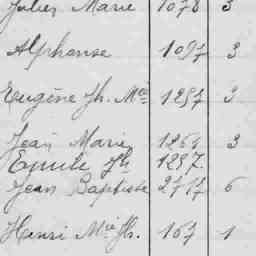 Jules Marie 1078 3
Alphonse 1097 3
Eugène Jh. Mie 1297 3
Jean Marie 1261 3
Emile Jh 1297
Jean Baptiste 2717 6
Henri Mie Jh. 167 1